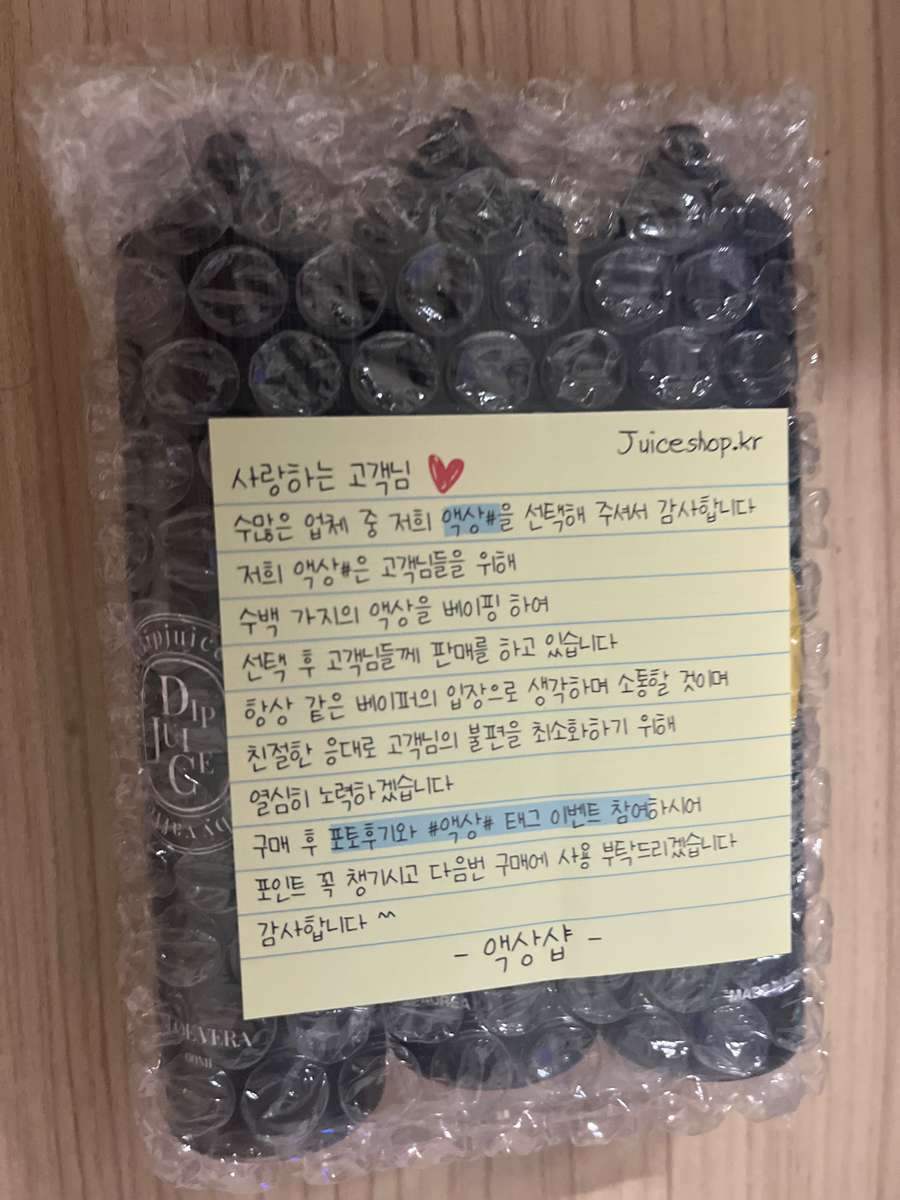 Juiceshop.kr
사랑하는 고객님
수많은 업체 중 저희 액상#을 선택해 주셔서 감사합니다
저희 액상#은 고객님들을 위해
수백 가지의 액상을 베이핑 하여
선택 후 고객님들께 판매를 하고 있습니다
항상 같은 베이퍼의 입장으로 생각하며 소통할 것이며
친절한 응대로 고객님의 불편을 최소화하기 위해
열심히 노력하겠습니다
구매 후 포토후기와 #액상# 태그 이벤트 참여하시어
포인트 꼭 챙기시고 다음번 구매에 사용 부탁드리겠습니다
감사합니다 ^^
- 액상샵 -
DIP
JUI
CE